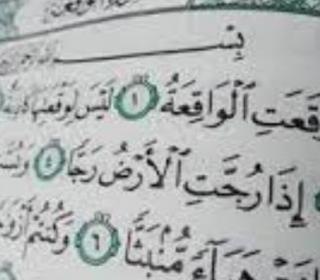 بِسْ
وَقَعَتِ ٱلْوَاقِعَةُ ١ لَيْسَ لِوَقْعَتِهَا كَاذِبَةٌ
إِذَا رُجَّتِ ٱلْأَرْضُ رَجًّا ٤ وَبُسَّ
هَبَآءً مُّنۢبَثًّا ٦ وَكُنتُمْ أَزْوَ